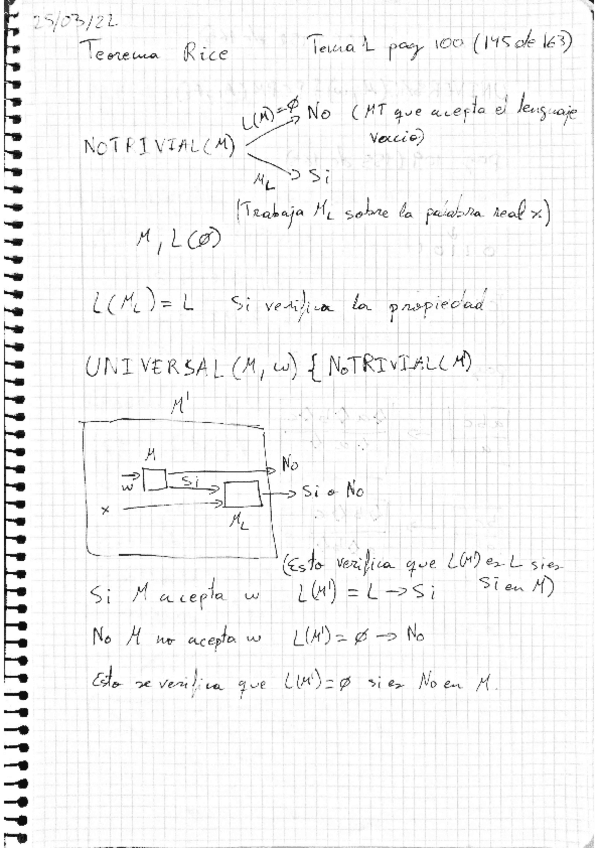 25/03/22
Teorema Rice Tema 1 pag 100 (145 de 163)
L(M)=∅ No (MT que acepta el lenguaje
vacio)
NOTRIVIAL(M)
M_L Si
(Trabaja M_L sobre la palabra real x)
M, L(∅)
L(M_L) = L Si verifica la propiedad
UNIVERSAL(M, w) { NOTRIVIAL(M')
M'
M No
w Si Si o No
x
M_L
(Esto verifica que L(M') es L si es
Si M acepta w L(M') = L → Si Si en M)
No M no acepta w L(M') = ∅ → No
Esto se verifica que L(M') = ∅ si es No en M.